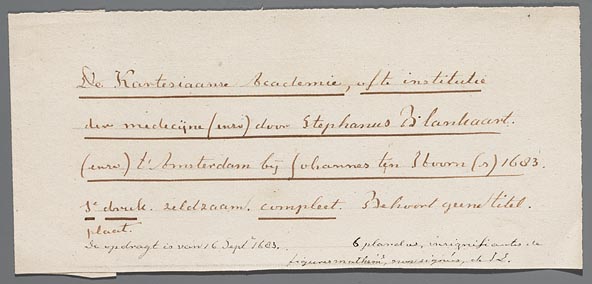 De Kartesiaanse Academie, ofte institutie
der medicijne (enz) door Stephanus Blankaart.
(enz) t'Amsterdam bij Johannes ten Hoorn (s) 1683.
1e druk. zeldzaam. compleet. Behoort geene titel.
plaat.
De opdragt is van 16 Sept. 1683.
6 planches, insignifiantes de
figures mathém, non signés, de J. L.